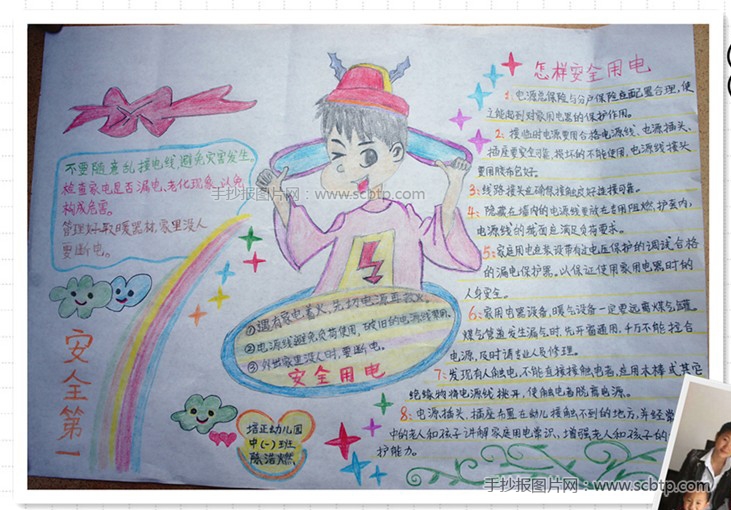 怎样安全用电
1:电源总保险与分户保险应配置合理,使
之能起到对家用电器的保护作用。
2:接临时电源要用合格电源线、电源插头、
插座要安全可靠,损坏的不能使用,电源线接头
要用胶布包好。
3:线路接头应确保接触良好连接可靠。
4:隐藏在墙内的电源线要放在专用阻燃,护套内,
电源线的截面应满足负荷要求。
5:家庭用电应装设带有过电压保护的调试合格
的漏电保护器。以保证使用家用电器时的
人身安全。
6:家用电器设备,暖气设备一定要远离煤气罐。
煤气管道发生漏气时,先开窗通用,千万不能拉合
电源,及时请专业人员修理。
7:发现有人触电,不能直接接触电者,应用木棒或其它
绝缘物将电源线挑开,使触电者脱离电源。
8:电源插头、插座布置在幼儿接触不到的地方,并经常
中的老人和孩子讲解家庭用电常识,增强老人和孩子的
护能力。
不要随意乱接电线,避免灾害发生,
检查家电是否漏电、老化现象,以免
构成危害。
管理好取暖器材,家里没人
要断电。
手抄报图片网:www.scbtp.com
①遇有家电着火,先切电源再救火。
②电源线避免负荷使用,破旧的电源线要用。
③外出家里没人时,要断电。
安全用电
安全第一
培正幼儿园
中(一)班
陈浩燃
手抄报图片网:www.scbtp.com